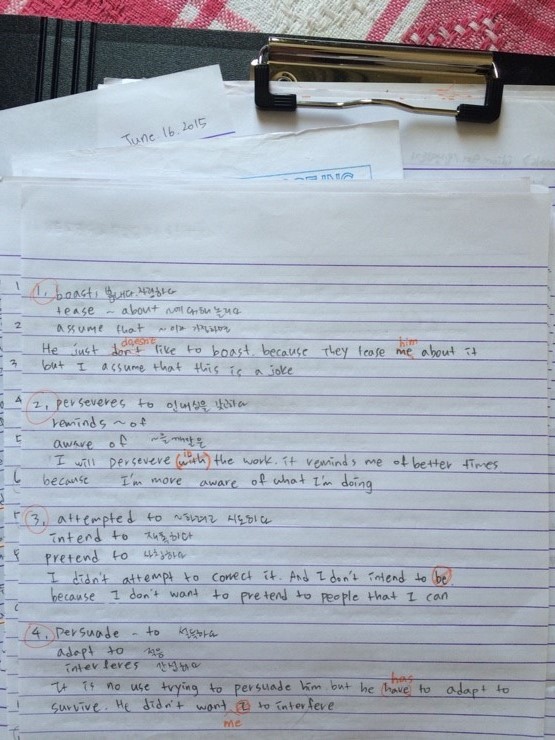 June. 16. 2015
1. boast, 뽐내다. 자랑하다
tease ~ about
assume that
doesn't him
He just don't like to boast. because They tease me about it
but I assume that this is a joke
2. perseveres to
reminds ~ of
aware of ~을 깨달은
in
I will persevere with the work. it reminds me of better times
because I'm more aware of what I'm doing
3. attempted to ~하려고 시도하다
intend to
pretend to
I didn't attempt to correct it. And I don't intend to be
because I don't want to pretend to people that I can
4. persuade ~ to 설득하다
adapt to 적응
interferes 간섭하다
has
It is no use trying to persuade him. but he have to adapt to
survive. He didn't want I to interfere
me